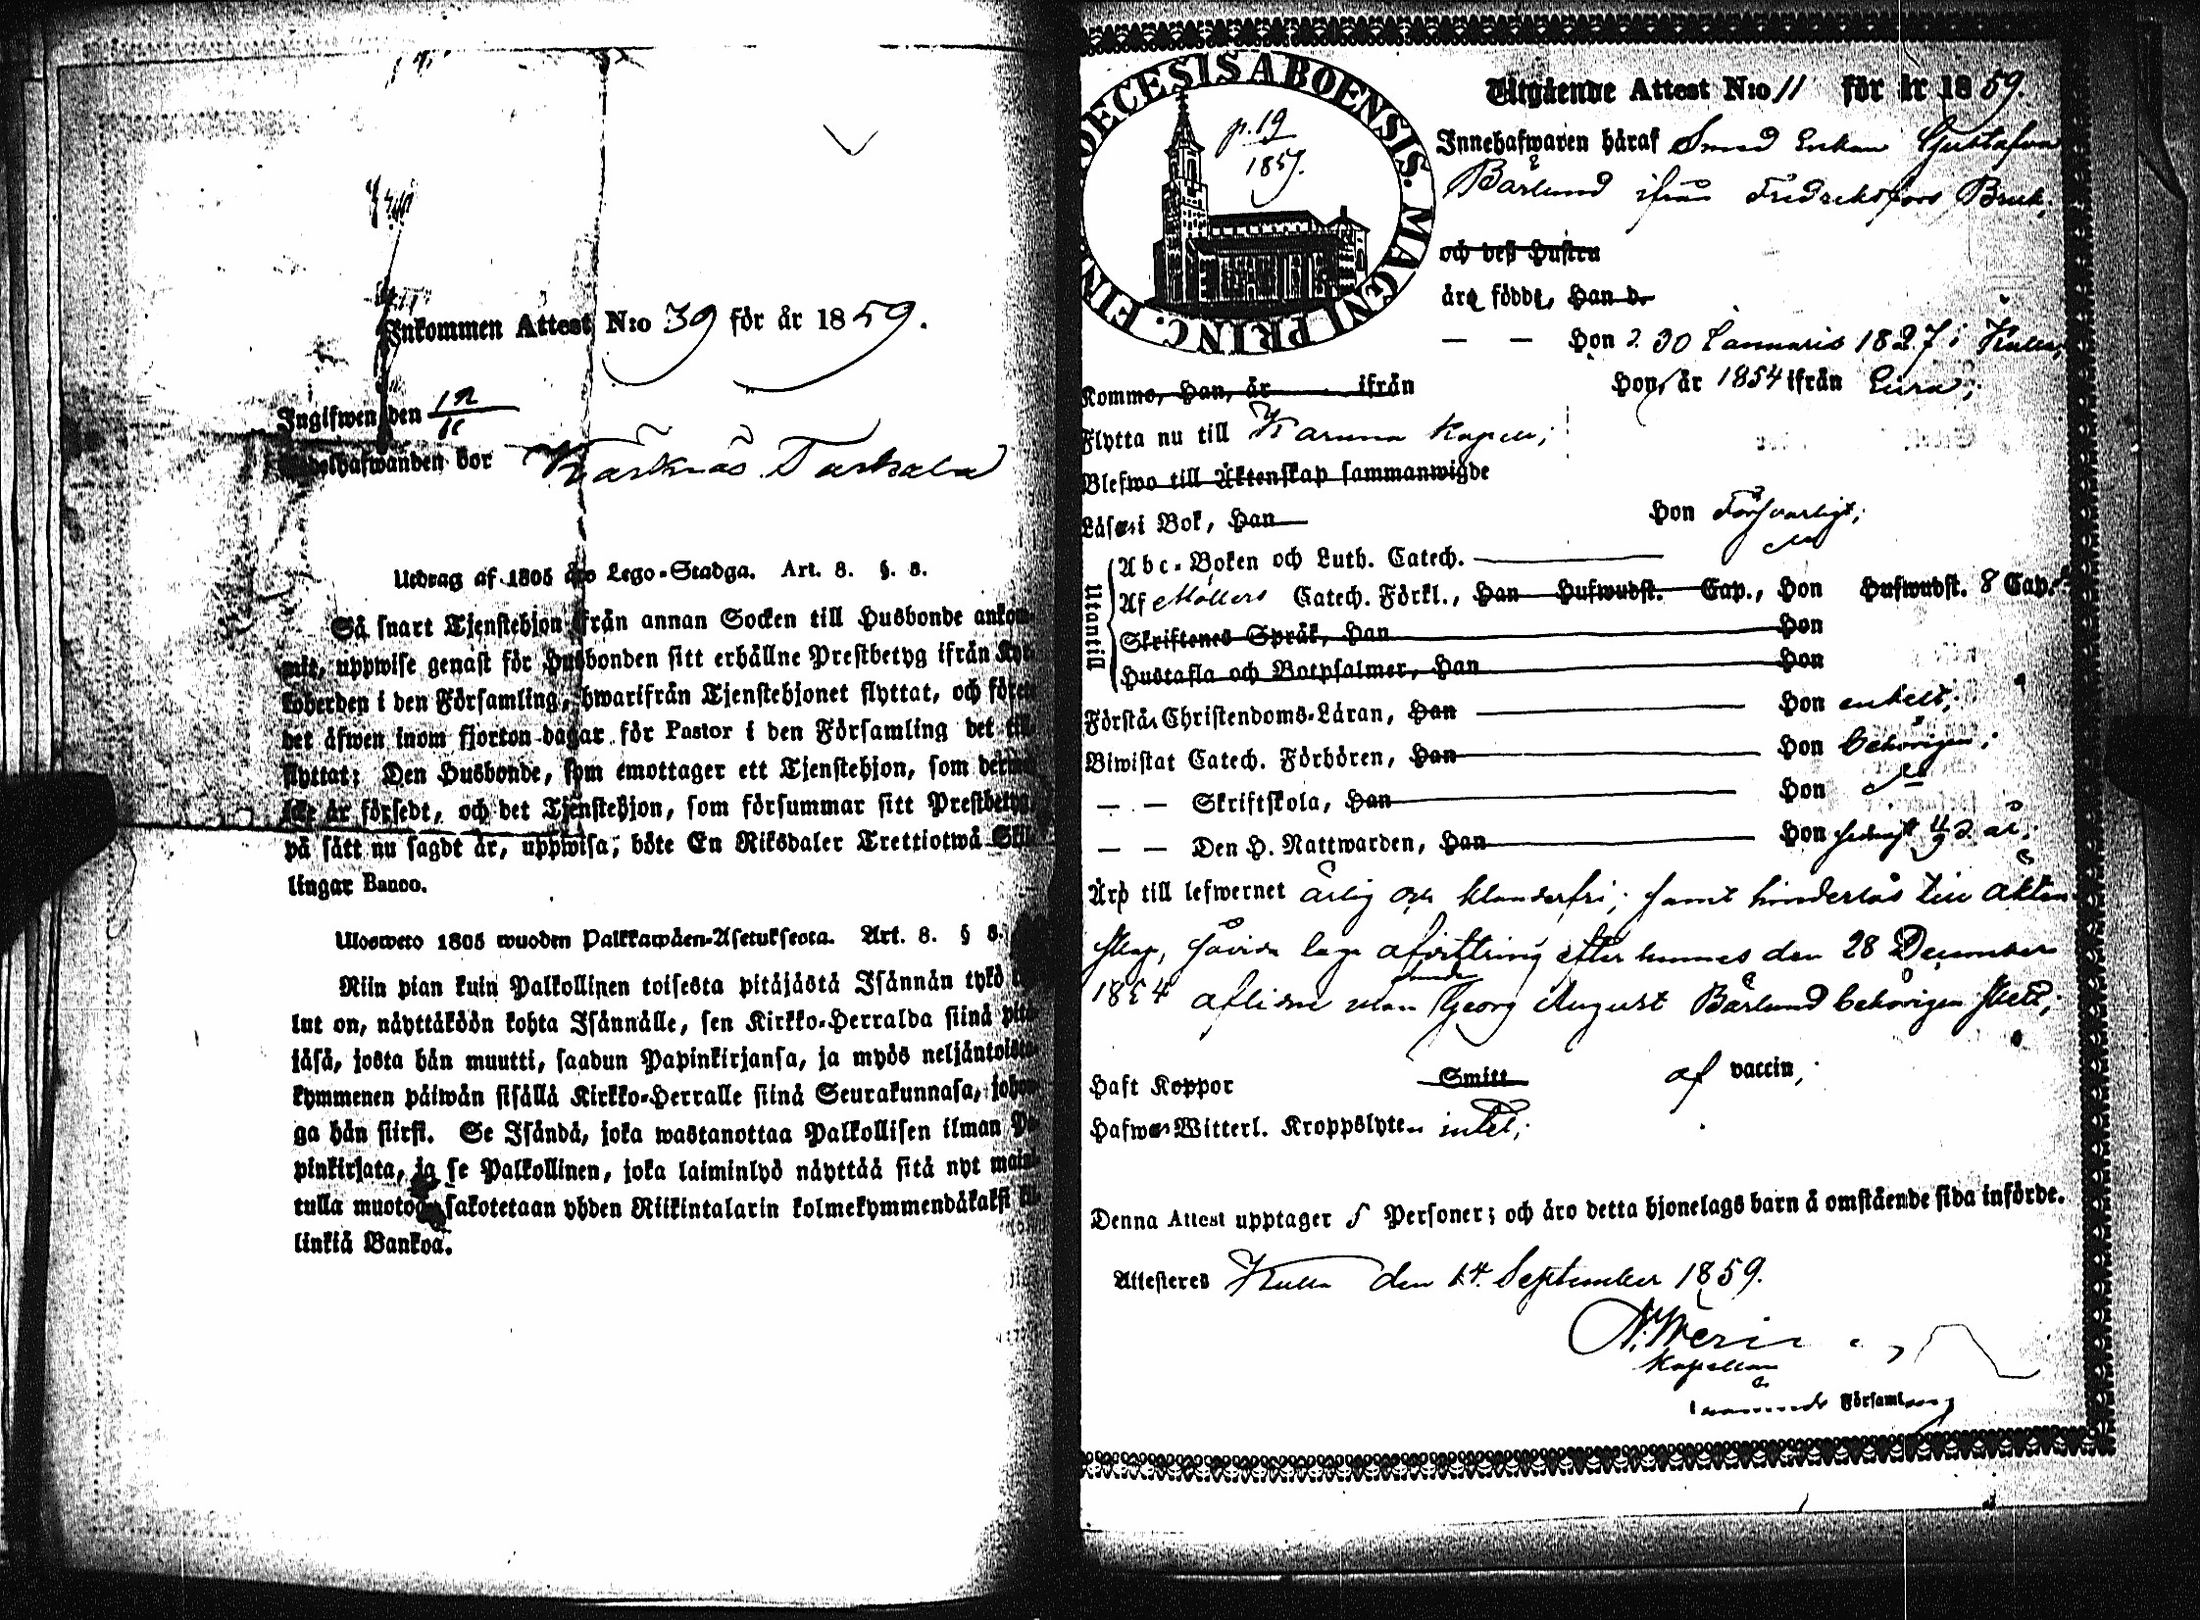 Inkommen Attest N:o 39 för år 1859.
Ingifwen den 12/11
bor Karknäs Tarkala
Utdrag af 1805 års Lego-Stadga. Art. 8. §. 8.
Så snart Tjenstehjon ifrån annan Socken till Husbonde ankom-
mit, uppwise genast för Husbonden sitt erhållne Prestbetyg ifrån Kyr-
koherden i den Församling, hwarifrån Tjenstehjonet flyttat, och förete
det äfwen inom fjorton dagar för Pastor i den Församling det till-
flyttat: Den Husbonde, som emottager ett Tjenstehjon, som dermed
icke är försedt, och det Tjenstehjon, som försummar sitt Prestbetyg,
på sätt nu sagdt är, uppwisa, böte En Riksdaler Trettiotwå Skil-
lingar Banco.
Ulosweto 1805 wuoden Palkkawäen-Asetuksesta. Art. 8. § 8.
Niin pian kuin Palkollinen toisesta pitäjästä Isännän tykö tul-
lut on, näyttäköön kohta Isännälle, sen Kirkko-Herralda siinä pitä-
jäsä, josta hän muutti, saadun Papinkirjansa, ja myös neljäntoista-
kymmenen päiwän sisällä Kirkko-Herralle siinä Seurakunnasa, johon-
ga hän siirsi. Se Isändä, joka wastanottaa Palkollisen ilman Pa-
pinkirjata, ja se Palkollinen, joka laiminlyö näyttää sitä nyt maini-
tulla muotoa, sakotetaan yhden Riikintalarin kolmekymmendäkaksi kil-
linkiä Bankoa.
DECESIS ABOENSIS. MAGNI PRINC. FIN
p. 19
1859.
Utgående Attest N:o 11 för år 1859.
Innehafwaren häraf Smed Enkan Gustafva
Bärlund ifrån Fredriksfors Bruk,
och deß Hustru
äro födde, Han d.
— — Hon d. 30 Januarii 1827 i Kulla,
Komme, Han, år ifrån Hon, år 1854 ifrån Eura;
Flytta nu till Karuna Kapell;
Blefwo till Äktenskap sammanwigde
Läser i Bok, Han Hon Försvarligt;
Utantill
Abc-Boken och Luth. Catech.
Af Möllers Catech. Förkl., Han Hufwudst. Cap., Hon Hufwudst. 8 Cap.
Skriftenes Språk, Han Hon
Hustafla och Botpsalmer, Han Hon
Förstår Christendoms-Läran, Han Hon enkelt;
Biwistat Catech. Förhören, Han Hon behörigen;
— — Skriftskola, Han Hon
— — Den H. Nattwarden, Han Hon sednast 4/9 d. år;
Äro till lefwernet ärlig och klanderfri; samt hinderlös till äkten-
skap, såvida laga afvittring efter hennes den 28 December
1854 aflidne man Smeden Georg August Bärlund behörigen skett;
Haft Koppor Smitt af vaccin,
Hafwer Witterl. Kroppslyten intet;
Denna Attest upptager 5 Personer; och äro detta hjonelags barn å omstående sida införde.
Attesteras Kulla den 14. September 1859.
Kapellan
Församling